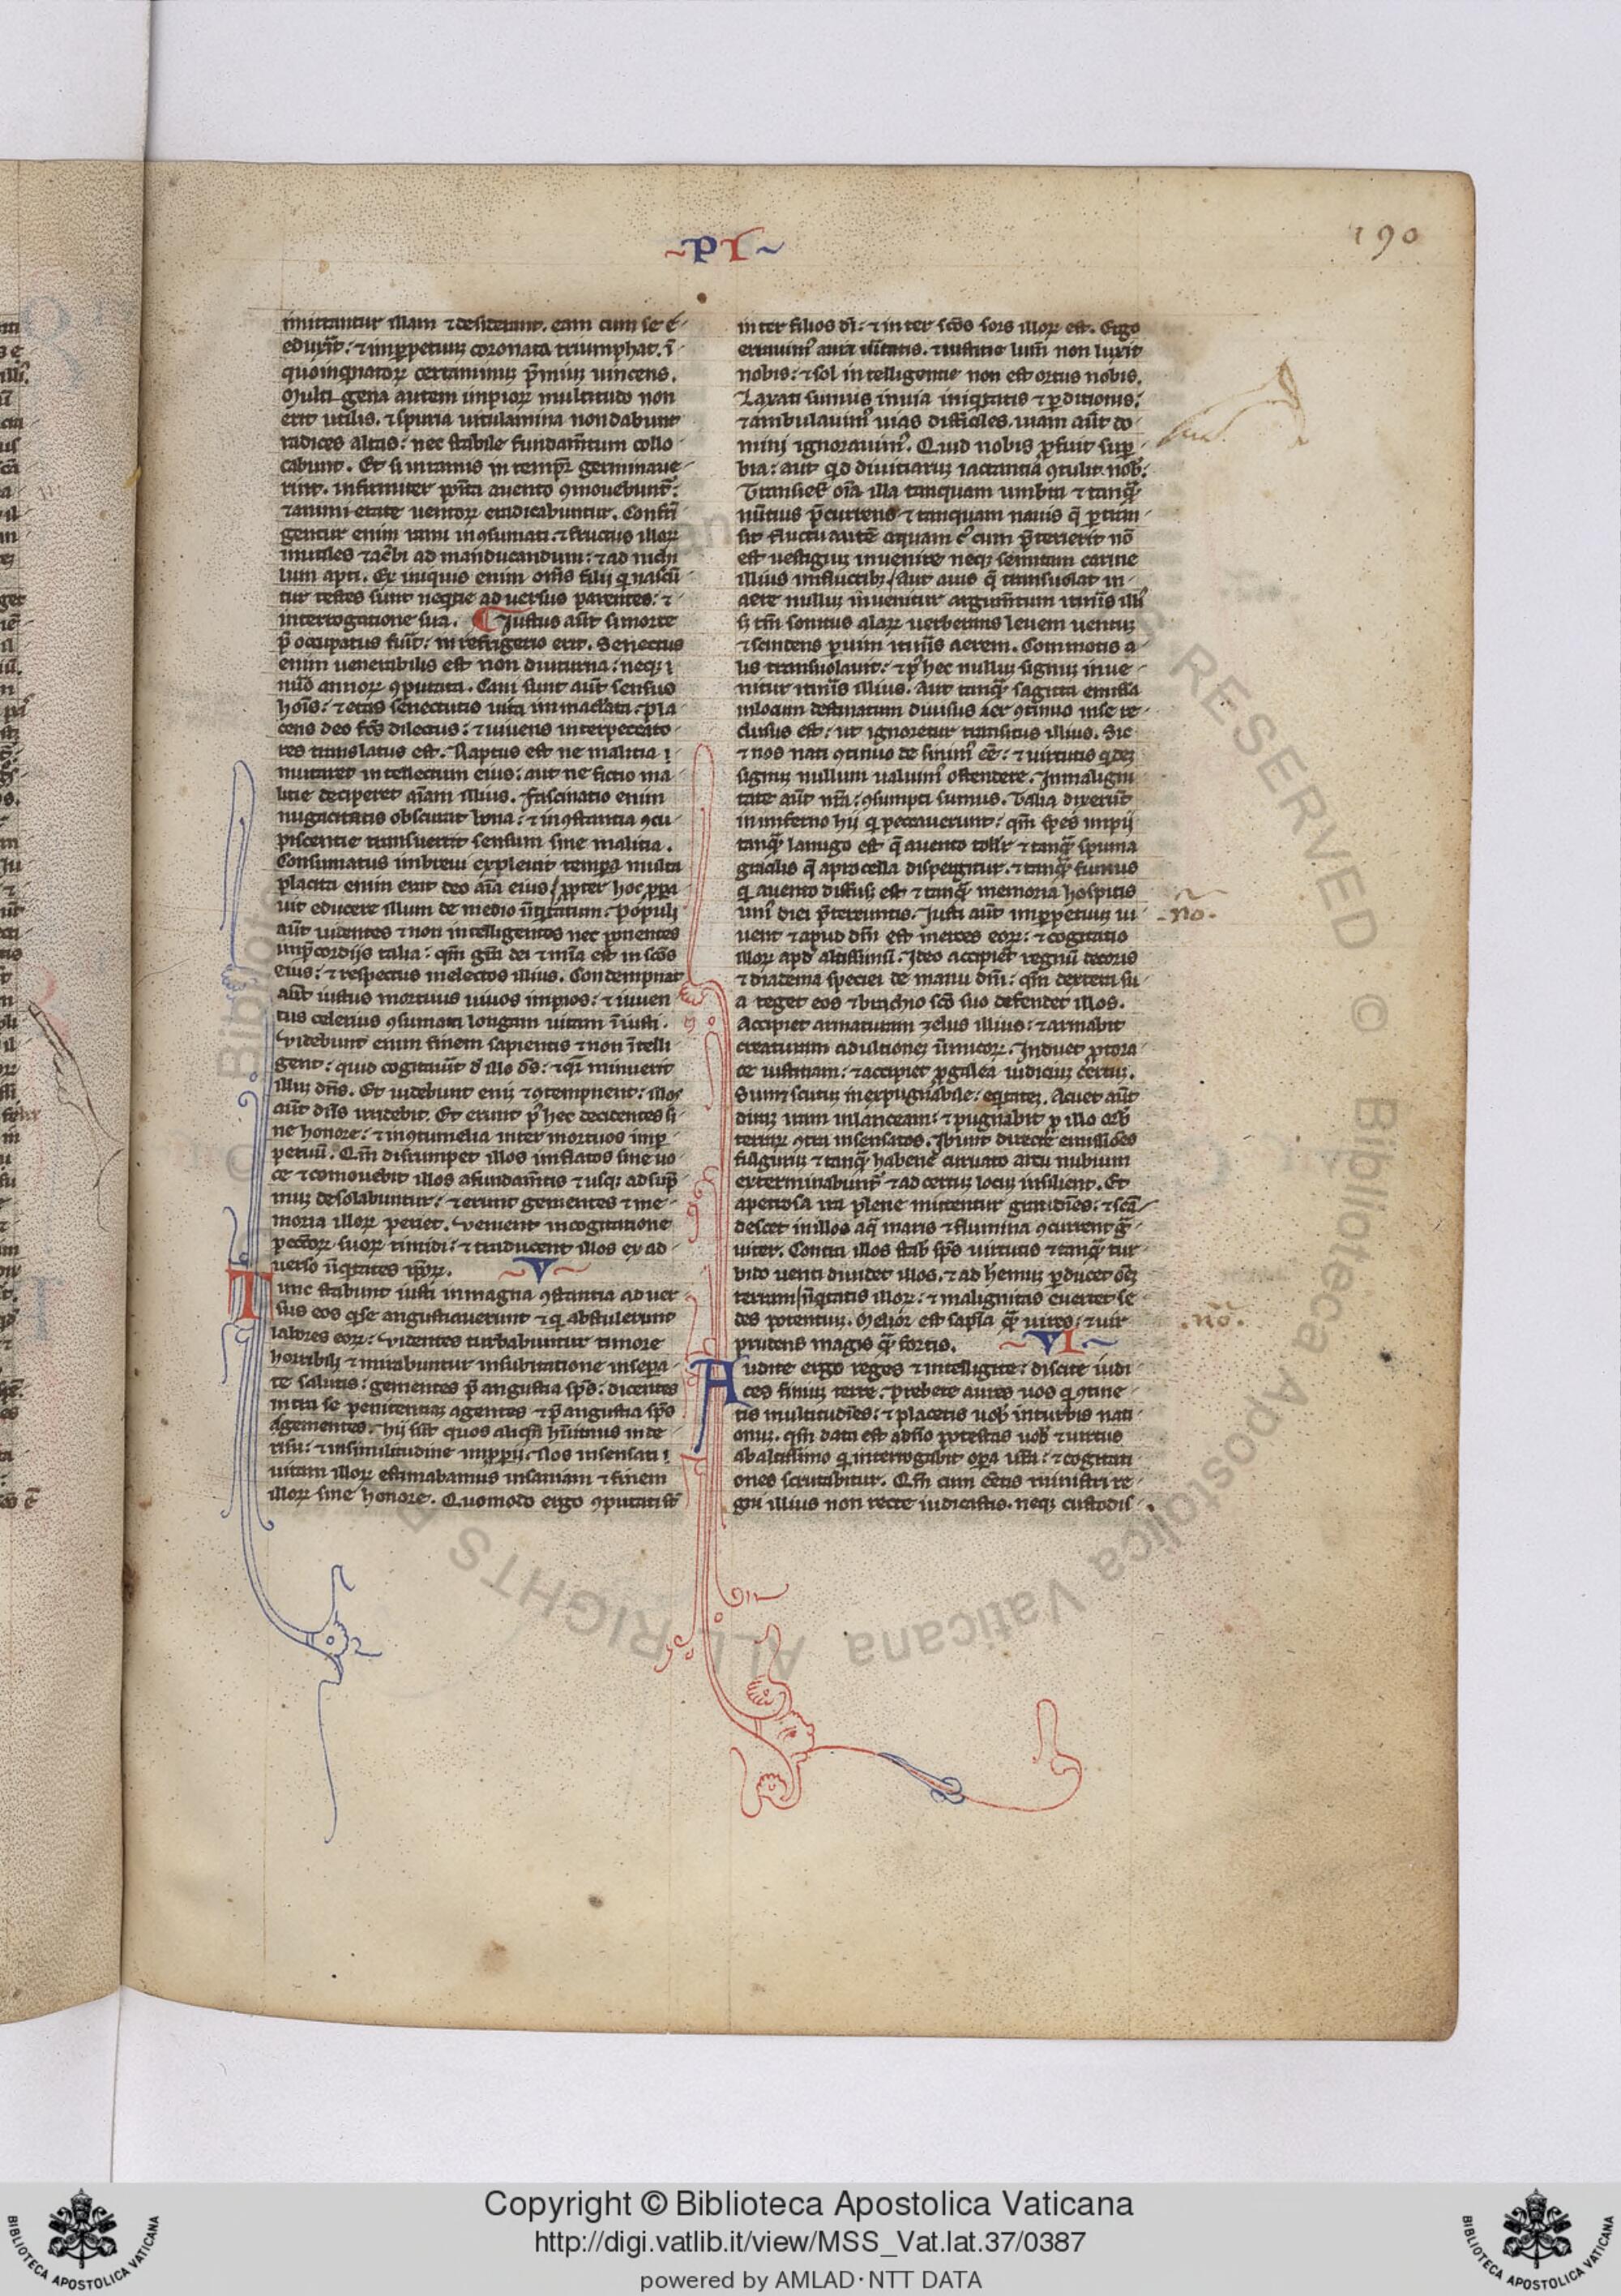 ~PR~
190
imittantur illam ⁊ desiderant. eam cum se e-
duxit̄: ⁊ inꝑpetuuꝫ coronata triumphat. ī-
quoinꝗnatoꝝ certaminuꝫ p̄miuꝫ uincens.
Multigena autem impioꝝ multitudo non
erit utilis. ⁊ spuria uitulamina non dabunt
radices altas: nec stabile fundam̄tum collo-
cabunt. Et si in ramis in temp̄r̄ germinaue-
rint. infirmiter po̅ita auento ꝯmouebunt̄:
⁊ animi etate uentoꝝ eradicabuntur. Confrī-
gentur enim rami inꝯsumati. ⁊ fructus illoꝝ
inutiles ⁊ acerbi ad manducandum: ⁊ ad nichi
lum apti. Ex iniquis enim om̄s filij q̇ nascū-
tur testes sunt nequitie aduersus parentes: ⁊
interrogatione sua. Justus aūt si morte
p̄ocupatus fuīt: in refrigerio erit. Senectus
enim uenerabilis est non diuturna: neqꝫ ī
nūo annoꝝ ꝯputata. Cani sunt aūt sensus
hoīs: ⁊ etas senectutis uita inmaculata. pla
cens deo fc̄s dilectus: ⁊ uiuens inter peccato-
res translatus est. Raptus est ne malitia ī
mutaret intellectum eius: aut ne fictio ma
litie deciperet aīam illius. Fascinatio enim
nugacitatis obscurat bona: ⁊ inꝯstantia ꝯcu-
piscentie transuertit sensum sine malitia.
Consumatus inbreui expleuit tempa multa
placita enim erat deo aīa eius ꝓpter hoc ꝓpa
uit educere illum de medio iniq̇tatum. Populi
aūt uidentes ⁊ non intelligentes nec ponentes
inp̄cordijs talia: qm̄ gr̄a dei ⁊ mīa est in sc̄os
eius: ⁊ respectus inelectos illius. Condempnat
aūt iustus mortuus uiuos impios: ⁊ iuuen
tus celerius ꝯsumata longam uitam iniusti.
Videbunt enim finem sapientis ⁊ non ītelli
gent: quid cogitauīt d̄ illo ds̄: ⁊ qr̄ minuerit
illuꝫ dn̄s. Et uidebunt eniꝫ ⁊ ꝯtempnent: illos
aūt dn̄s irridebit. Et erunt p̄ hec decidentes si-
ne honore: ⁊ inꝯtumelia inter mortuos inꝑ-
petuū. Qm̄ disrumpet illos inflatos sine uo-
ce ⁊ ꝯmouebit illos afundam̄tis ⁊ usqꝫ ad sup̄
muꝫ desolabuntur: ⁊ erunt gementes ⁊ me-
moria illoꝝ periet. Venient incogitatione
peccatoꝝ suoꝝ timidi: ⁊ traducent illos ex ad-
uerso iniq̇tates ip̄oꝝ. ~V~
Tunc stabunt iusti inmagna ꝯstantia aduer-
sus eos q̇se angustiauerunt ⁊ q̇ abstulerunt
labores eoꝝ: Videntes turbabuntur timore
horribili ⁊ mirabuntur insubitatione inspera-
te salutis: gementes p̄ angustia sp̄s: dicentes
intra se penitentiaꝫ agentes ⁊ p̄ angustia sp̄s
agementes. hij sūt quos aliqn̄ hūimus inde-
risū: ⁊ insimilitudine imꝓpij. Nos insensati ī
uitam illoꝝ estimabamus insaniam ⁊ finem
illoꝝ sine honore. Quomodo ergo ꝯputati sūt
inter filios dī: ⁊ inter sc̄os sors illoꝝ est. Ergo
errauim̾ auia ūitatis. ⁊ iustitie lum̄ non luxit
nobis: ⁊ sol intelligentie non est ortus nobis.
Laxati sumus inuia iniq̇tatis ⁊ ꝑditionis:
⁊ ambulauim̾ uias difficiles. uiam aūt do-
mini ignorauim̾. Quid nobis ꝓfuit suꝑ-
bia: aut qd diuitiaruꝫ iactantia ꝯtulit. nob̾:
Transieȓt oīa illa tanquam umbra ⁊ tanq̄
nūtius p̄currens ⁊ tanquam nauis q̄ ꝑtran-
sit fluctuantē aquam c̾ cum p̄terierit nō
est uestigiuꝫ inuenire neqꝫ semitam carine
illius influctibꝫ Aut auis q̄ transuolat in-
aere nulluꝫ inuenitur argum̄tum itin̄is illi̾
sꝫ tm̄ sonitus alaꝝ uerberans leuem uentuꝫ
⁊ scindens ꝑuim itin̄is aerem. Commotis a-
lis transuolauit: ⁊ p̾ hec nulluꝫ signuꝫ inue-
nitur itin̄is illius. Aut tanq̄ sagitta emissa
inlocum destinatum diuisus aer ꝯtinuo inse re-
clusus est: ut ignoretur transitus illius. Sic
⁊ nos nati ꝯtinuo desiuim̾ eē: ⁊ uirtutis q̇deꝫ
signuꝫ nullum ualuim̾ ostendere. Inmaligni-
tate aūt nr̄a: ꝯsumpti sumus. Talia dixerūt
ininferno hij q̇ peccauerunt: qm̄ spes impij
tanq̄ lanugo est q̄ auento tollit̄ ⁊ tanq̄ spuma
gracilis q̄ aprocella dispergitur. ⁊ tanq̄ fumus
q̇ auento diffusꝫ est ⁊ tanq̄ memoria hospitis
uni̾ diei p̄tereuntis. Justi aūt inꝑpetuuꝫ ui-
uent ⁊ apud dn̄m est merces eoꝝ: ⁊ cogitatio
illoꝝ apd̾ altissimū. Ideo accipiēt regnū decoris
⁊ diadema speciei de manu dn̄i: qm̄ dextera su-
a teget eos ⁊ brachio sc̄o suo defendet illos.
Accipiet armaturam zelus illius: ⁊ armabit
creaturam ad ultioneꝫ inimicoꝝ. Induet ꝓtora-
ce iustitiam: ⁊ accipiet ꝓgalea iudiciuꝫ certuꝫ.
Sumet scutuꝫ inexpugnabile: equitateꝫ. Acuet aūt
diraꝫ iram inlanceam: ⁊ pugnabit ꝑ illo orb̾
terraꝝ ꝯtra insensatos. Ibunt directe emissiōes
fulguruꝫ ⁊ tanq̄ habene curuato arcu nubium
exterminabunt̾ ⁊ ad certuꝫ locuꝫ insilient. Et
apetrosa ira plene mittentur grandines: ⁊ scā-
descet inillos aq̄ maris ⁊ flumina ꝯcurrent g̾-
uiter. Contra illos stab̾ sp̄s uirtutis ⁊ tanq̄ tur-
bido uenti diuidet illos. ⁊ ad hemuꝫ ꝑducet oēꝫ
terram iniq̇tatis illoꝝ: ⁊ malignitas euertet se-
des potentuꝫ. Melior est sapīa q̄ uires: ⁊ uir
prudens magis q̄ fortis. ~VI.~
Audite ergo reges ⁊ intelligite: discite iudi-
ces finiuꝫ terre. Prebete aures uos q̇ ꝯtine-
tis multitudīes: ⁊ placetis uob̾ inturbis nati-
onuꝫ. qm̄ data est adn̄o potestas uob̾ ⁊ uirtus
abaltissimo q̇ interrogabit opa ur̄a: ⁊ cogitati-
ones scrutabitur. Qm̄ cum eētis ministri re-
gni illius non recte iudicastis. neqꝫ custodis-
.no.
.no.
Copyright © Biblioteca Apostolica Vaticana
http://digi.vatlib.it/view/MSS_Vat.lat.37/0387
powered by AMLAD·NTT DATA
BIBLIOTECA APOSTOLICA VATICANA
BIBLIOTECA APOSTOLICA VATICANA
© Biblioteca Apostolica Vaticana ALL RIGHTS RESERVED